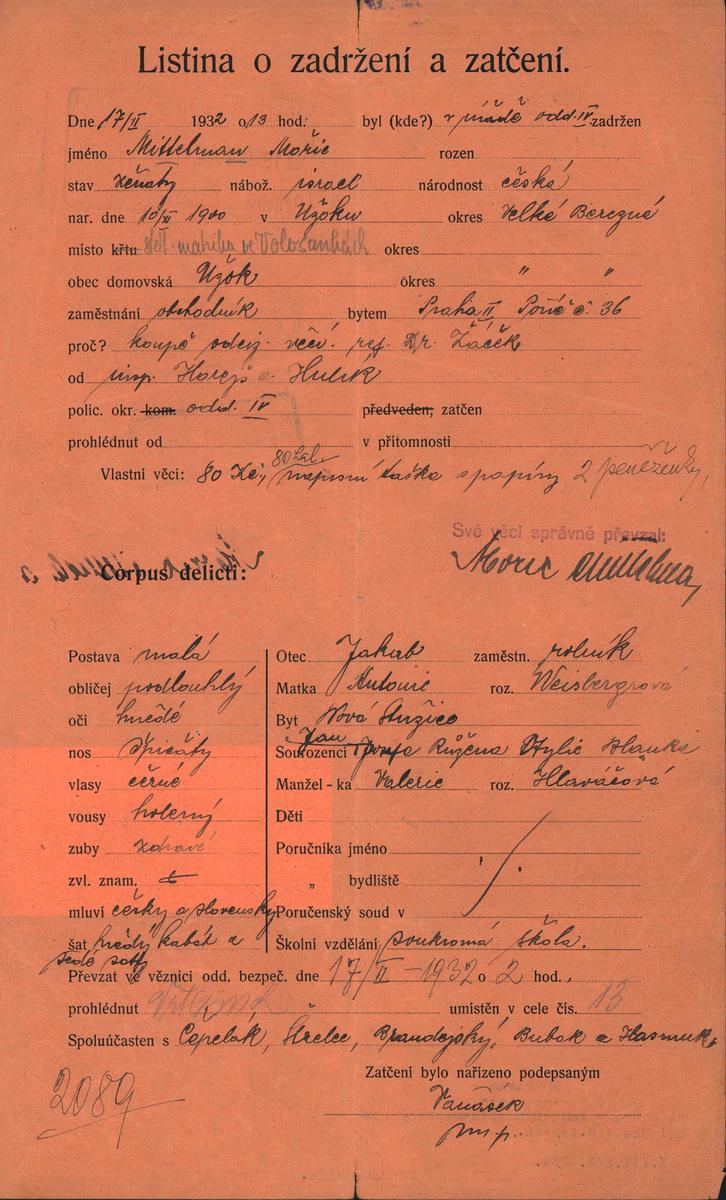 Listina o zadržení a zatčení.
Dne 17/II 1932 o 13 hod. byl (kde?) v odd. IV. zadržen
jméno Mittelman Mořic rozen
stav ženatý nábož. israel národnost česká
nar. dne 10/ 1900 v Užoku okres Velké Berezné
místo křtu Žid. matrika ve Volosankách okres
obec domovská Užok okres " "
zaměstnání obchodník bytem Praha II Poříč č. 36
proč? koupě odciz. věcí. ref. Dr. Žáček
od insp. Horejš a Hulík
polic. okr. kom. odd. IV předveden, zatčen
prohlédnut od v přítomnosti
Vlastní věci: 80 Kč, 80 hal. náprsní taška s papíry 2 peněženky,
Své věci správně převzal:
Corpus delicti: Moric Mittelman
Postava malá Otec Jakub zaměstn. rolník
obličej podlouhlý Matka Antonie roz. Weisbergrová
oči hnědé Byt Nová
Jan
nos špičatý Sourozenci Josefa Růžena Otylie Blanka
vlasy černé Manžel-ka Valerie roz. Hlaváčová
vousy holený Děti
zuby zdravé Poručníka jméno
zvl. znam. „ bydliště
mluví česky a slovensky Poručenský soud v
šat hnědý kabát a Školní vzdělání soukromá škola.
šedé
Převzat ve věznici odd. bezpeč. dne 17/II - 1932 o 2 hod.
prohlédnut " umístěn v cele čís. 13
Spoluúčasten s Čepelák, Střelec, Brandejský, Bubak a Hasmuk
Zatčení bylo nařízeno podepsaným
2089
Vaňásek